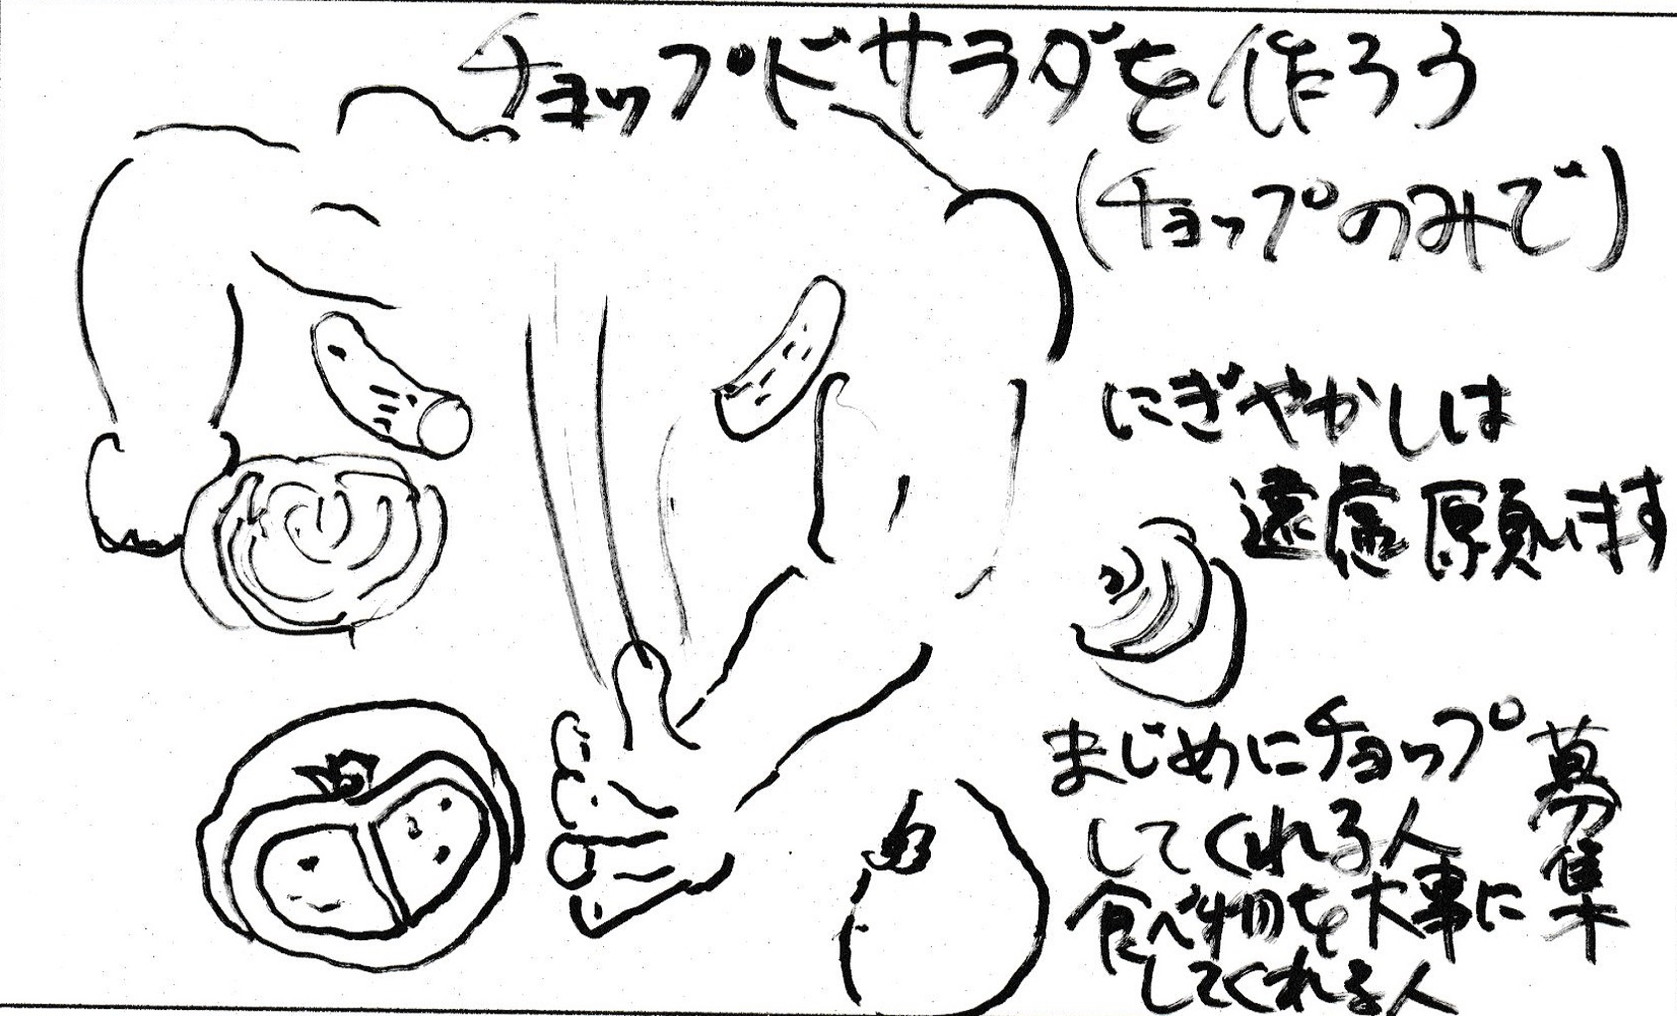 チョップドサラダを作ろう
(チョップのみで)
にぎやかしは
遠慮願います
まじめにチョップ
してくれる人
食べ物を大事に
してくれる人
募集